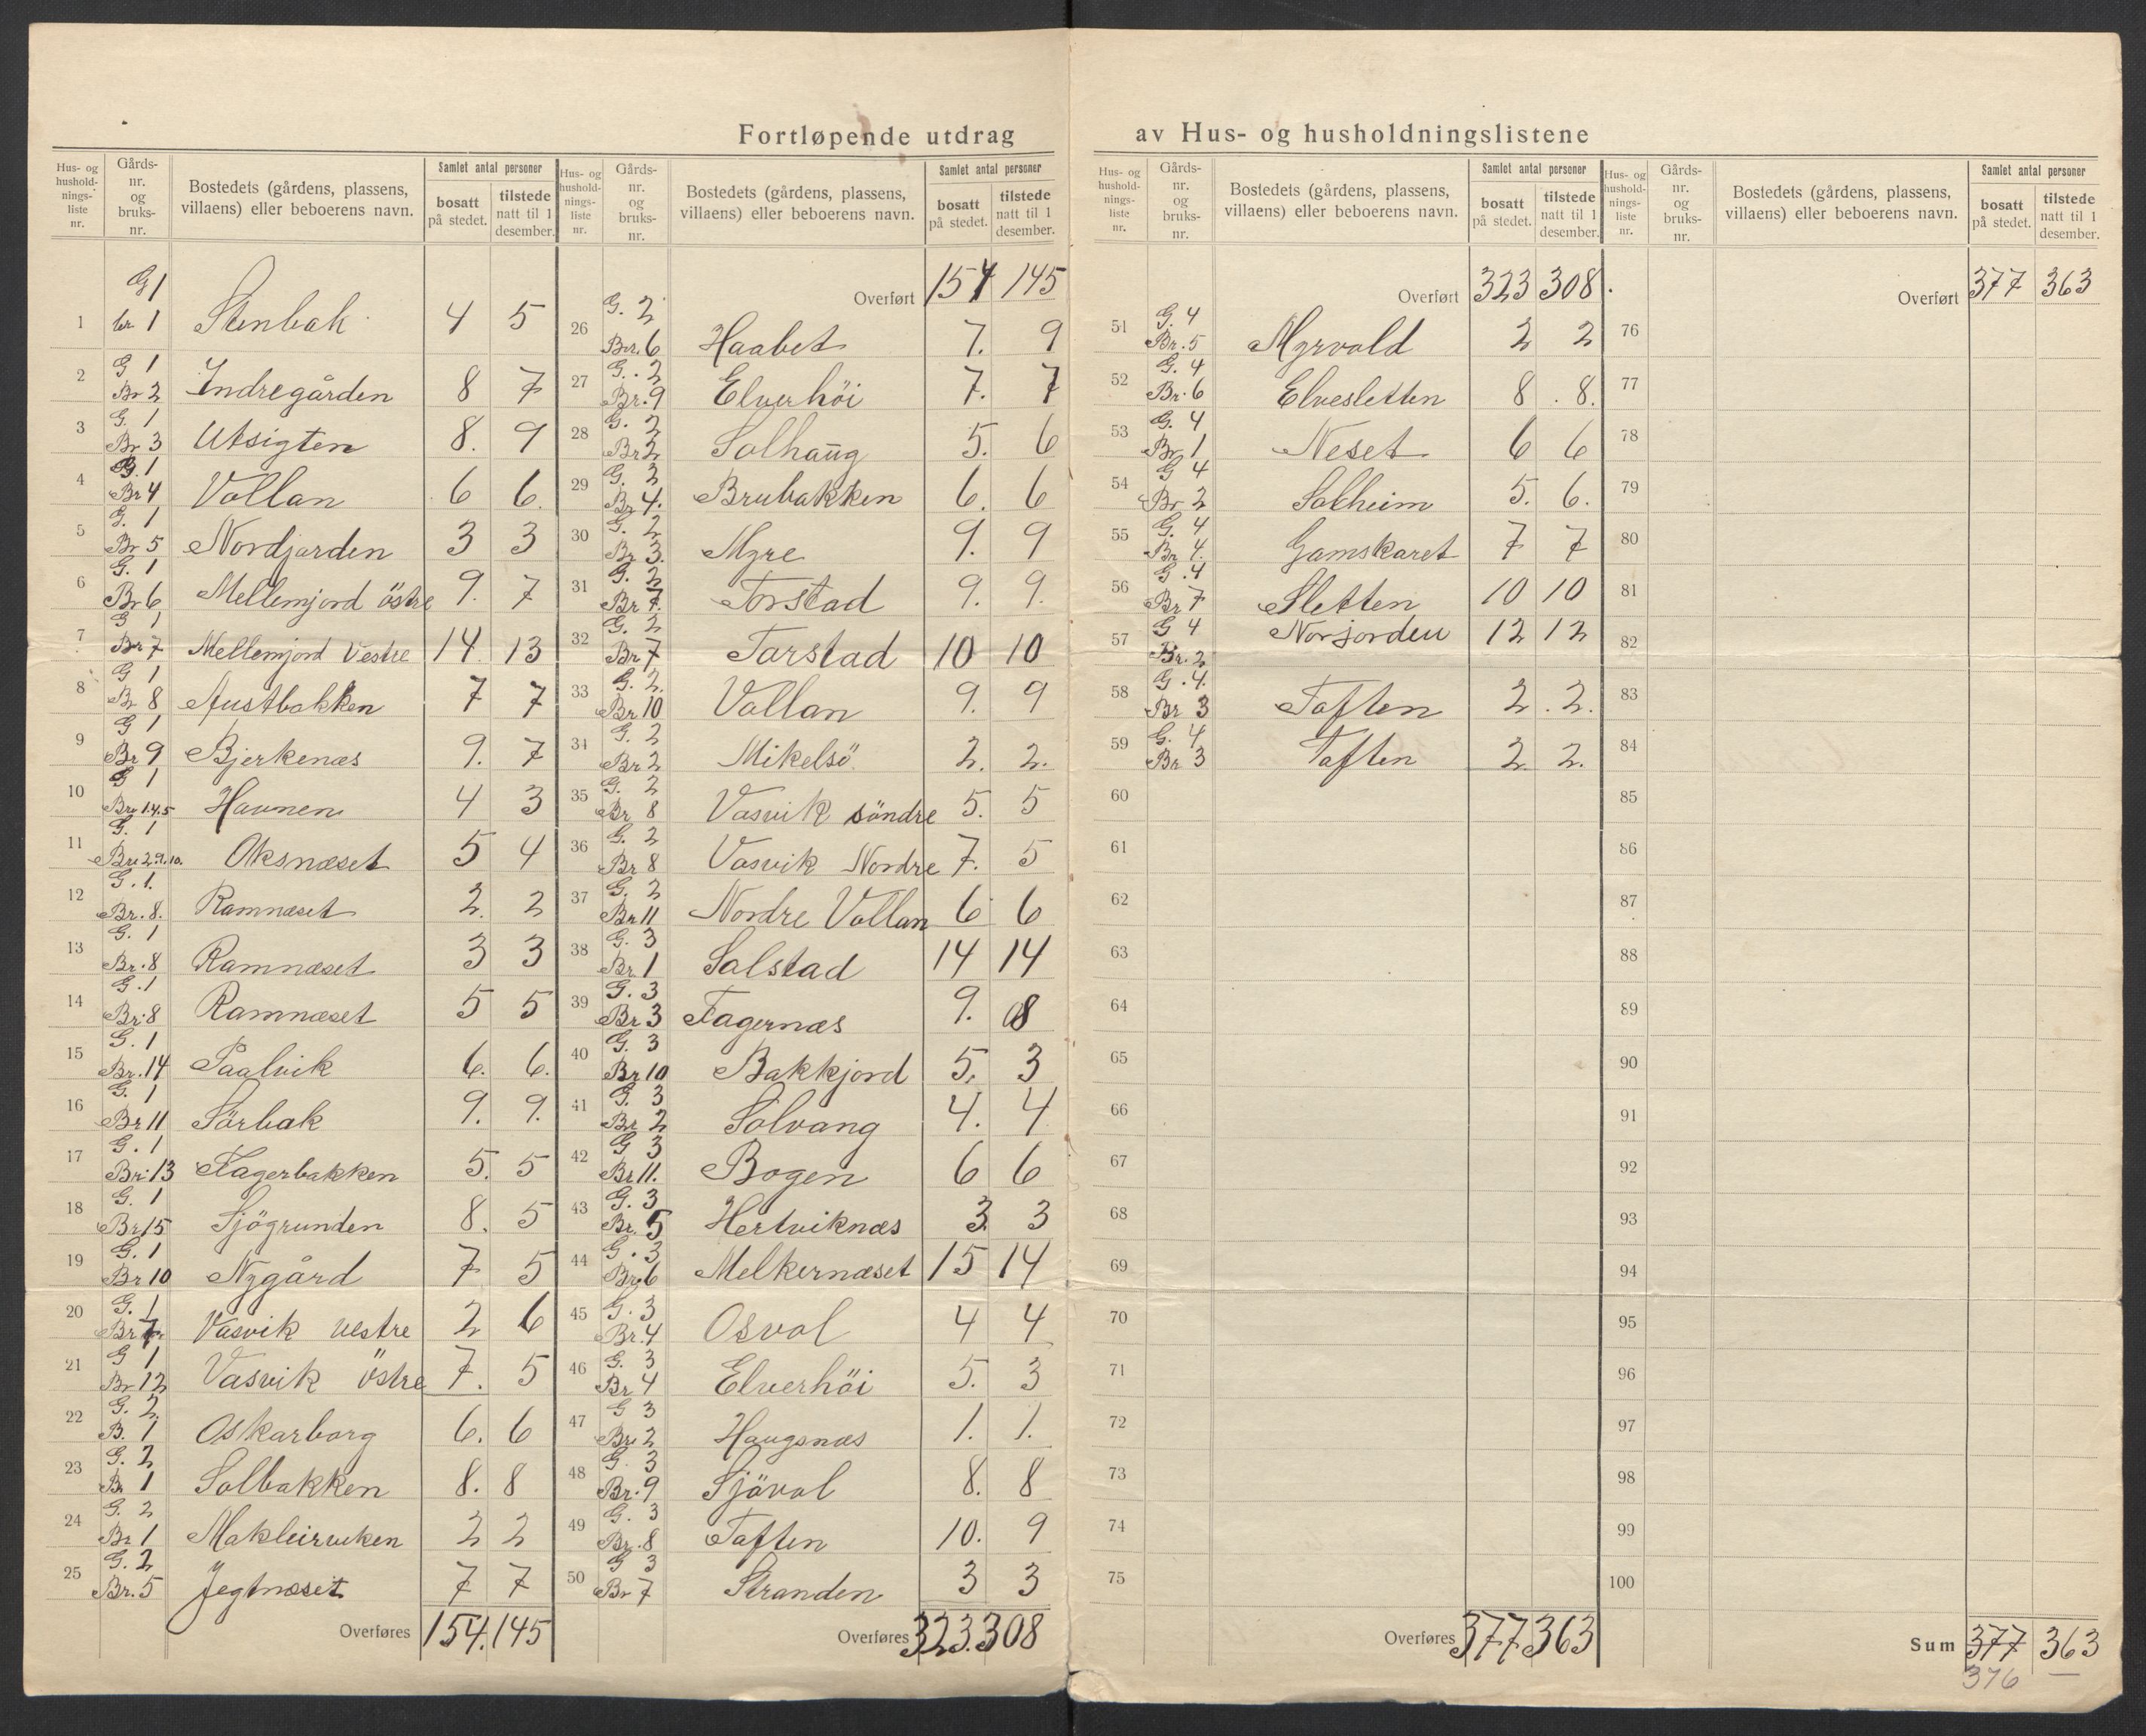 Fortløpende utdrag av Hus- og husholdningslistene
Hus- og hushold-nings-liste nr. | Gårds-nr. og bruks-nr. | Bostedets (gårdens, plassens, villaens) eller beboerens navn. | Samlet antal personer | bosatt på stedet. | tilstede natt til 1 desember.
1 G 1 br. 1 Stenbak 4 5
2 G 1 Br 2 Indregården 8 7
3 G. 1 Br 3 Utsigten 8. 9
4 G. 1 Br 4 Vollan 6 6.
5 G. 1 Br 5 Nordjorden 3 3
6 G. 1 Br 6 Mellemjord östre 9. 7
7 G 1 Br 7 Mellemjord Vestre 14. 13
8 G 1 Br 8 Austbakken 7 7
9 G 1 Br 9 Bjerkenæs 9. 7
10 G 1 Br. 1.4.5 Havnen 4 3
11 G. 1 Br. 2.9.10. Oksnæset 5 4
12 G. 1. Br. 8. Ramnæset 2. 2
13 G. 1 Br. 8 Ramnæset 3 3
14 G. 1 Br. 8 Ramnæset 5 5
15 G. 1 Br. 14 Paalvik 6. 6.
16 G. 1 Br 11 Sörbak 9. 9.
17 G. 1 Br. 13 Fagerbakken 5. 5
18 G. 1 Br 15 Sjögrunden 8. 5
19 G. 1 Br 10 Nygård 7 5
20 G. 1 Br 7 Vasvik vestre 2 6
21 G 1 Br 12 Vasvik östre 7. 5
22 G. 2 B. 1 Oskarborg 6. 6
23 G. 2 B. 1 Solbakken 8. 8
24 G. 2 Br 1 Makleirviken 2 2
25 G. 2 Br. 5 Jegtnæset 7 7
Overføres 154. 145
Hus- og hushold-nings-liste nr. | Gårds-nr. og bruks-nr. | Bostedets (gårdens, plassens, villaens) eller beboerens navn. | Samlet antal personer | bosatt på stedet. | tilstede natt til 1 desember.
Overført 154 145
26 G. 2 Br. 6 Haabet 7. 9
27 G. 2 Br. 9 Elverhöi 7. 7
28 G. 2 Br 2 Solhaug 5. 6
29 G. 2 Br 4. Brubakken 6. 6
30 G. 2 Br 3. Myre 9. 9
31 G. 2 Br 7. Torstad 9. 9.
32 G. 2 Br 7 Tarstad 10 10
33 G. 2. Br 10 Vollan 9. 9
34 G. 2 Br 2 Mikelsö 2. 2.
35 G. 2 Br 8 Vasvik söndre 5. 5
36 G. 2 Br 8 Vasvik Nordre 7. 5
37 G. 2 Br 11 Nordre Vollan 6 6
38 G. 3 Br 1 Solstad 14 14
39 G. 3 Br 3 Fagernæs 9. 8
40 G. 3 Br 10 Bakkjord 5. 3
41 G. 3 Br 2 Solvang 4. 4
42 G 3 Br 11. Bogen 6 6
43 G. 3 Br. 5 Hertviknæs 3. 3
44 G. 3 Br. 6 Melkernæset 15 14
45 G. 3 Br. 4 Osvol 4 4
46 G. 3 Br 4 Elverhöi 5. 3
47 G 3 Br. 2 Haugsnæs 1. 1.
48 G. 3 Br. 9 Sjövol 8. 8
49 G. 3 Br. 8 Toften 10. 9
50 G 3 Br 7 Stranden 3 3
Overføres 323. 308
Hus- og hushold-nings-liste nr. | Gårds-nr. og bruks-nr. | Bostedets (gårdens, plassens, villaens) eller beboerens navn. | Samlet antal personer | bosatt på stedet. | tilstede natt til 1 desember.
Overført 323 308
51 G. 4 Br. 5 Myrvold 2 2
52 G. 4 Br. 6 Elvesletten 8. 8.
53 G. 4 Br. 1 Neset 6 6
54 G 4 Br 2 Solheim 5. 6.
55 G. 4 Br 4. Gamskaret 7 7
56 G. 4 Br 7 Sletten 10 10
57 G 4 Br. 2 Norjorden 12 12
58 G. 4. Br 3 Toften 2. 2.
59 G. 4 Br 3 Toften 2. 2.
60
61
62
63
64
65
66
67
68
69
70
71
72
73
74
75
Overføres 377 363
Hus- og hushold-nings-liste nr. | Gårds-nr. og bruks-nr. | Bostedets (gårdens, plassens, villaens) eller beboerens navn. | Samlet antal personer | bosatt på stedet. | tilstede natt til 1 desember.
Overført 377 363
76
77
78
79
80
81
82
83
84
85
86
87
88
89
90
91
92
93
94
95
96
97
98
99
100
Sum 377 363
376 —